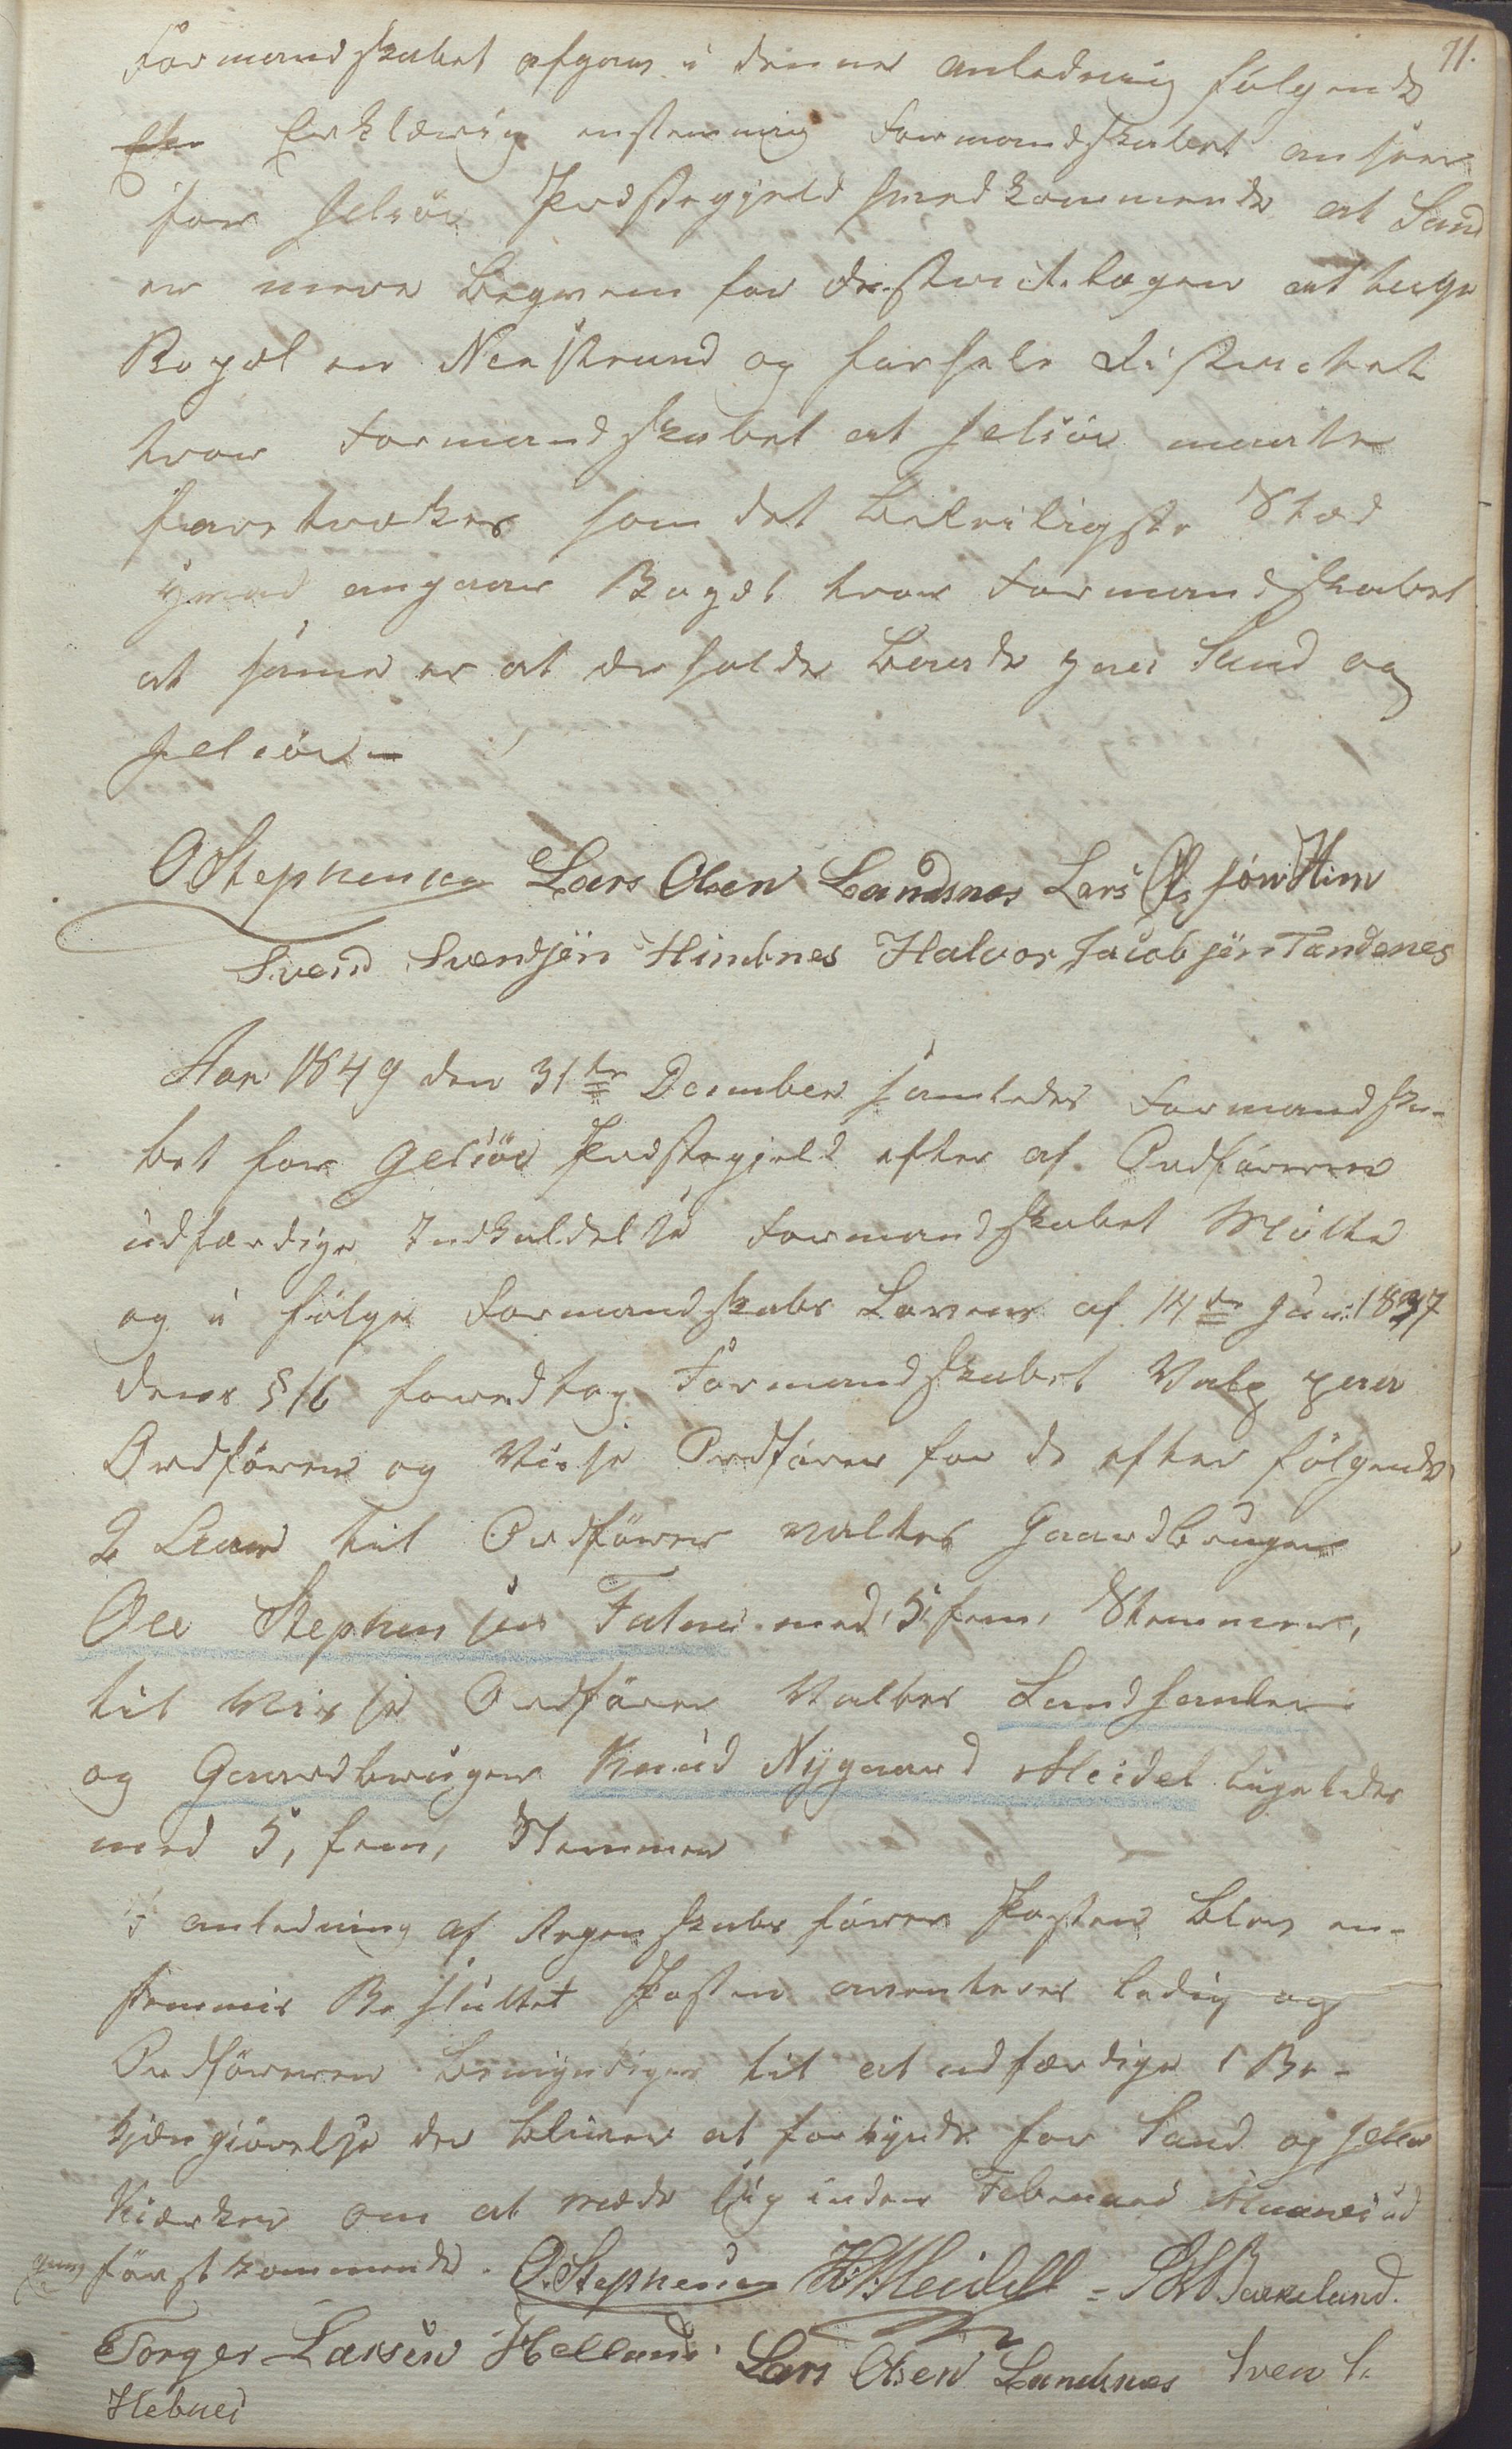 71.
Formandskabet afgav i denne anledning følgende
Erklæring enstemmig Formandskabet anseer
for Jelsøe Præstegjeld vedkommende at Sand
er mere beqvem for destrictslægen at tage
Bopæl en Neerstrand og for hele districtet
tror Formandskabet at Jelsøe maate
foretrækkes som det beleiligste Stæd
hvad angaar Bopæl tror Formandskabet
at samme er at erholde baade paa Sand og
Jelsøe –
OStephensen Lars Olsen Landsnes Lars Ols søn Him
Svend Svendsen Hindnes Halvor Jacobsøn Tandenes
Aar 1849 den 31te December samledes Formandska-
bet for Gelsøe Præstegjeld efter af Ordføreren
udfærdige Indkaldelse Formandskabet Mötte
og i følge Formandskabs Lovens af 14de Juni 1837
dens § 16 foredtog Formandskabet Valg paa
Ordfører og Vise Ordfører for de efter følgende
2 Aar til Ordfører valtes Gaardbruger
Ole Stephensen Fatne med 5, fem, Stemmer,
til Vise Ordfører Valtes Landhandler
og Gaardbruger Knud Nÿgaard Meidel ligeledes
med 5, fem, Stemmer
I anledning af Regenskabsfører Posten blev en-
stemmis Besluttet Posten averteres ledig og
Ordføreren bemyndiges til at udfærdige 1 Be-
kjengiørelse der bliver at forkynde for Sand og Jelsø
Kiærker om at melde sig inden Februar Maaneds ud
gang førstkommende. O. Stephensen K. N. Meidell – Barkeland.
Torger Larsen Helland Lars Olsen Landsnes Sven S.
Hebnes